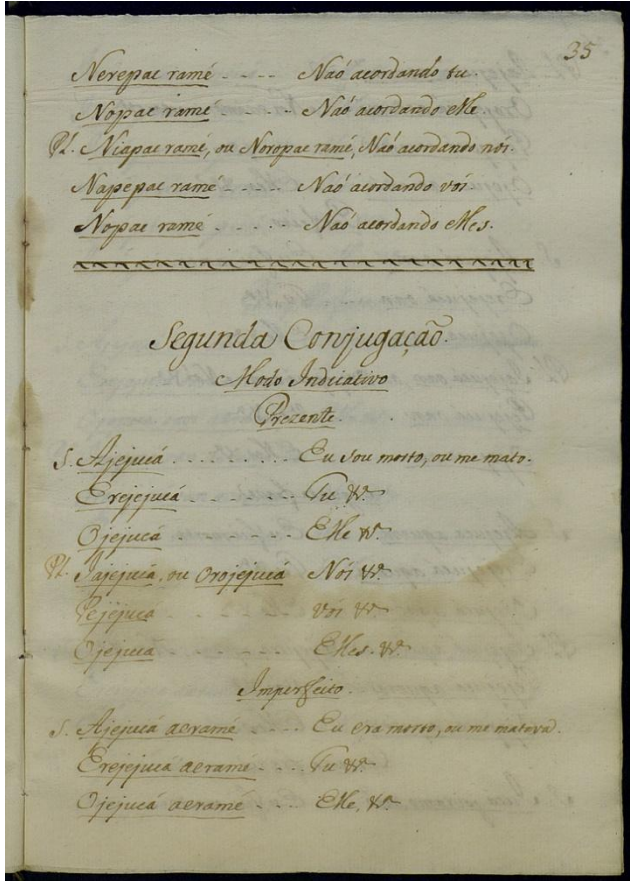 35
Nerepac ramé - - - - Naõ acordando tu.
Nopac ramé - - - - Naõ acordando elle
Pl. Niapac ramé, ou Noropac ramé, Naõ acordando nós.
Napepac ramé - - - - Naõ acordando vós
Nopac ramé - - - - Naõ acordando elles.
Segunda Conjugação.
Modo Indicativo
Prezente.
S. Ajejucá - - - - - - - - Eu sou morto, ou me mato.
Erejejucá - - - - - - - Tu &c.
Ojejucá - - - - - - - Elle &c.
Pl. Jajejucá, ou Orojejucá Nós &c.
Pejejucá - - - - - - - vós &c.
Ojejucá - - - - - - - Elles. &c.
Imperfeito.
S. Ajejucá aeramé - - - - Eu era morto, ou me matava.
Erejejucá aeramé - - - Tu &c.
Ojejucá aeramé - - - - Elle. &c.